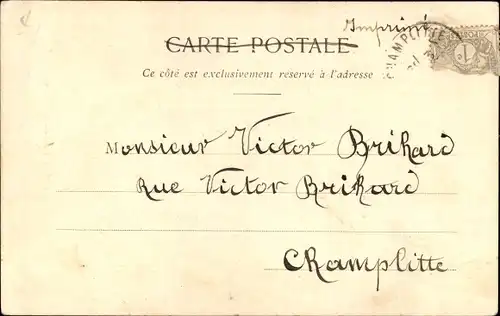 Imprimé
CARTE POSTALE
CHAMPLITTE
1
Ce côté est exclusivement reservé à l'adresse
Monsieur Victor Brihard
Rue Victor Brihard
Champlitte